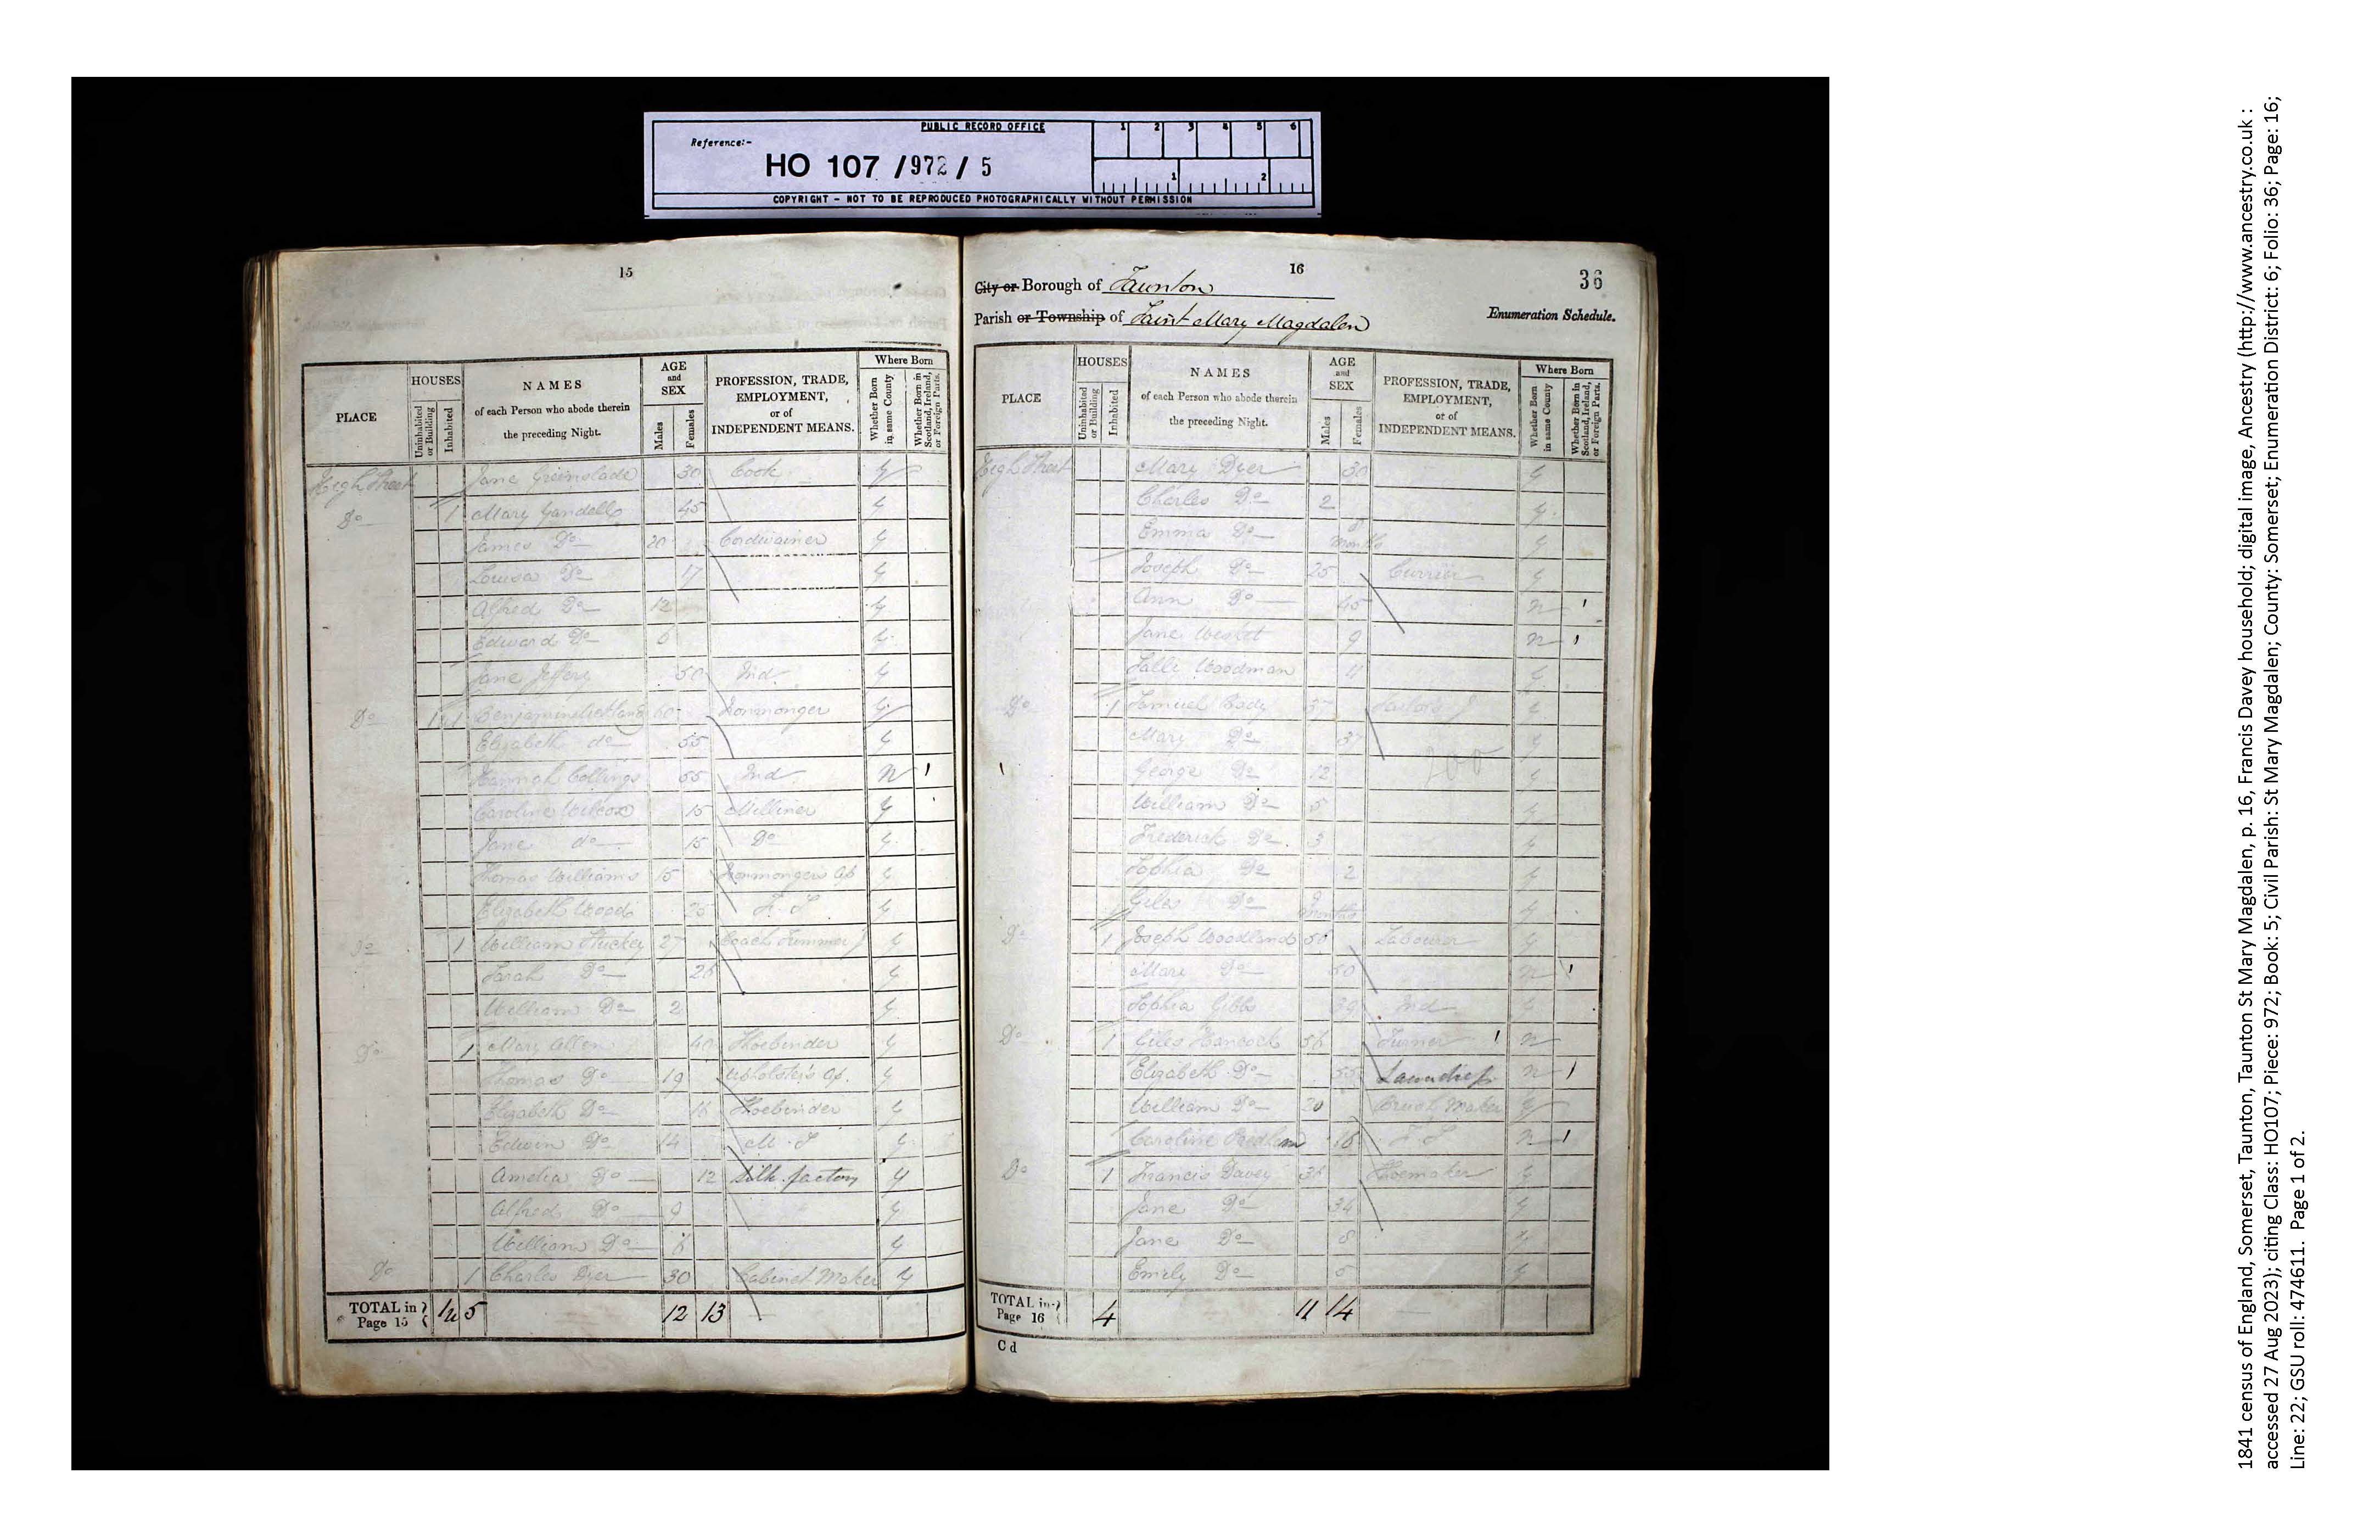 PUBLIC RECORD OFFICE
Reference:-
HO 107 /972 / 5
1 2 3 4 5 6
1 2
COPYRIGHT - NOT TO BE REPRODUCED PHOTOGRAPHICALLY WITHOUT PERMISSION
15
PLACE
HOUSES
Uninhabited or Building
Inhabited
NAMES
of each Person who abode therein
the preceding Night.
AGE
and
SEX
Males
Females
PROFESSION, TRADE,
EMPLOYMENT,
or of
INDEPENDENT MEANS.
Where Born
Whether Born in same County
Whether Born in Scotland, Ireland, or Foreign Parts.
High Street Jane Greenslade 30 Cook y
Do 1 Mary Gandell 45 y
James Do 20 Cordwainer y
Louisa Do 17 y
Alfred Do 12 y
Edward Do 6 y
Jane Jeffery 50 Ind y
Do Benjamin 60 Ironmonger y
Elizabeth do 55 y
Hannah Collings 55 Ind N 1
Caroline Wilcox 15 Milliner y
Jane do 15 Do y
Thomas Williams 15 Ironmongers Ap y
Elizabeth Wood 25 F. S y
Do 1 William Stuckey 27 Coach Trimmer J y
Sarah Do 26 y
William Do 2 y
Do 1 Mary Allen 40 Shoebinder y
Thomas Do 19 Ap. y
Elizabeth Do Shoebinder y
Edwin Do 14 M. S y
Amelia Do 12 Silk factory y
Alfred Do 9 y
William Do y
Do 1 Charles Dyer 30 Cabinet Maker y
TOTAL in Page 15 5 12 13
16
36
City or Borough of Taunton
Parish or Township of Saint Mary Magdalen
Enumeration Schedule.
PLACE
HOUSES
Uninhabited or Building
Inhabited
NAMES
of each Person who abode therein
the preceding Night.
AGE
and
SEX
Males
Females
PROFESSION, TRADE,
EMPLOYMENT,
or of
INDEPENDENT MEANS.
Where Born
Whether Born in same County
Whether Born in Scotland, Ireland, or Foreign Parts.
High Street Mary Dyer 30 y
Charles Do 2 y
Emma Do 8 months y
Joseph Do 25 Currier y
Ann Do 45 n 1
Jane 9 n 1
Woodman 11 y
Do 1 Samuel 37 J y
Mary Do 37 y
George Do 12 y
William Do 5 y
Frederick Do 3 y
Sophia Do 2 y
Giles Do months y
Do 1 Joseph Woodland Labourer y
Mary Do 50 n 1
Sophia Gibbs Ind y
Do 1 Giles Hancock 56 Turner 1 n
Elizabeth Do 55 Laundress n 1
William Do 20 Brush Maker y
Caroline 16 F. S n 1
Do 1 Francis Davey Shoemaker y
Jane Do 34 y
Jane Do 8 y
Emily Do 5 y
TOTAL in Page 16 4 11 14
C d
1841 census of England, Somerset, Taunton, Taunton St Mary Magdalen, p. 16, Francis Davey household; digital image, Ancestry (http://www.ancestry.co.uk :
accessed 27 Aug 2023); citing Class: HO107; Piece: 972; Book: 5; Civil Parish: St Mary Magdalen; County: Somerset; Enumeration District: 6; Folio: 36; Page: 16;
Line: 22; GSU roll: 474611. Page 1 of 2.